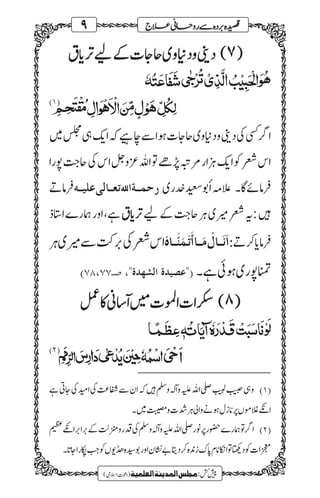 قصیدہ بردہ سے روحانی علاج
۹
(۷) دینی و دنیاوی حاجات کے لیے تریاق
ھُوَ الْحَبِیْبُ الَّذِیْ تُرْجٰی شَفَاعَتُہٗ
لِکُلِّ ھَوْلٍ مِّنَ الْاَھْوَالِ مُقْتَحِمٖ (۱)
اگر کسی کی دینی یا دنیاوی حاجات ہو اسے چاہیے کہ ایک ہی مجلس میں
اس شعر کو ایک ہزار مرتبہ پڑھے تو اللہ عزوجل اس کی حاجت کو پورا
فرمائے گا۔ علامہ ابو سعید خدری رحمة اللہ تعالی علیہ فرماتے
ہیں: یہ شعر میری ہر حاجت کے لیے تریاق ہے، اور ہمارے استاذ
فرمایا کرتے: اَنَا لَا اَتَمَنَّاہُ اس شعر کی برکت سے میری ہر
تمنا پوری ہوئی ہے۔ ("عصیدة الشھدة"، صـ۷۷،۷۸)
(۸) سکرات الموت میں آسانی کا عمل
لَوْ نَاسَبَتْ قَدْرَہٗ اٰیَاتُہٗ عِظَمًا
اَحْیَ اسْمُہٗ حِیْنَ یُدْعٰی دَارِسَ الرِّمَمٖ (۲)
(۱) وہی حبیب لبیب صلی اللہ علیہ وآلہ وسلم ہیں کہ ان سے شفاعت کی امید کی جاتی ہے
انکے غلاموں پر نازل ہونے والی ہر شدت و مصیبت میں۔
(۲) اگر تو ہمارے حضور پر نور صلی اللہ علیہ وآلہ وسلم کی قدر و منزلت کے برابر انکے عظیم
معجزات کو دیکھتا تو انکا نام پاک ہی زندہ کر دیتا بے نشان اور بوسیدہ ہڈیوں کو جب پکارا جاتا۔
پیش کش: مجلس المدینة العلمیة (دعوت اسلامی)